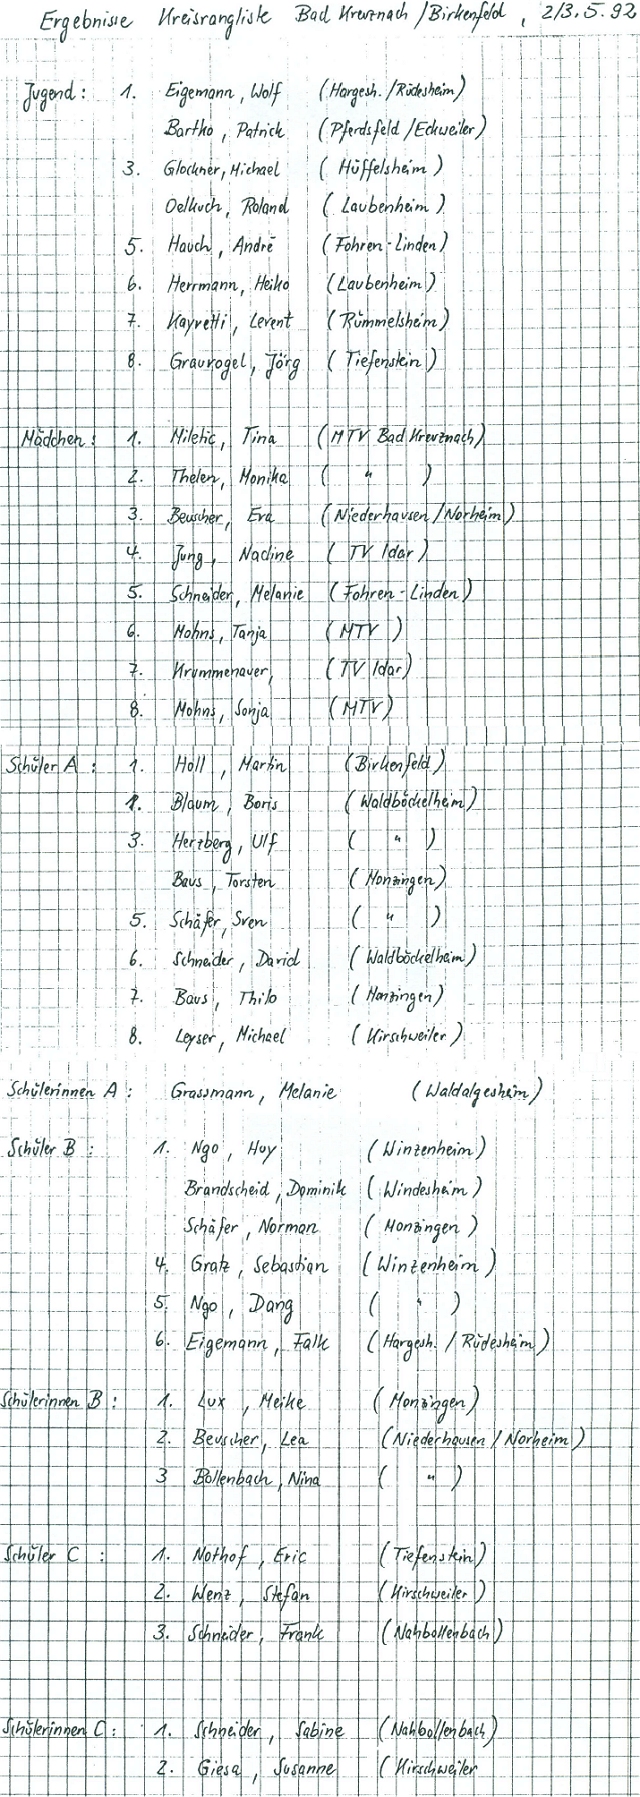 Ergebnisse Kreisrangliste Bad Kreuznach / Birkenfeld , 2/3. 5. 92
Jugend : 1. Eigemann , Wolf (Hargesh. / Rüdesheim)
Bartho , Patrick (Pferdsfeld / Eckweiler)
3. Glockner, Michael ( Hüffelsheim )
Oelkuch, Roland ( Laubenheim )
5. Hauch , André (Fohren - Linden)
6. Herrmann, Heiko (Laubenheim)
7. Kayretli , Levent (Rümmelsheim)
8. Grauvogel, Jörg ( Tiefenstein )
Mädchen : 1. Miletic, Tina (MTV Bad Kreuznach)
2. Thelen, Monika ( " )
3. Beuscher, Eva (Niederhausen / Norheim)
4. Jung , Nadine ( TV Idar )
5. Schneider, Melanie (Fohren - Linden )
6. Mohns, Tanja (MTV )
7. Krummenauer, (TV Idar)
8. Mohns, Sonja (MTV)
Schüler A : 1. Höll , Martin (Birkenfeld )
1. Blaum , Boris (Waldböckelheim)
3. Herzberg, Ulf ( " )
Baus , Torsten ( Monzingen)
5. Schäfer, Sven ( " )
6. Schneider , David (Waldböckelheim)
7. Baus , Thilo ( Monzingen)
8. Leyser , Michael ( Kirschweiler )
Schülerinnen A : Grassmann , Melanie (Waldalgesheim)
Schüler B : 1. Ngo , Huy (Winzenheim)
Brandscheid , Dominik ( Windesheim)
Schäfer , Norman ( Monzingen )
4. Gratz , Sebastian (Winzenheim )
5. Ngo , Dang ( " )
6. Eigemann , Falk (Hargesh. / Rüdesheim)
Schülerinnen B : 1. Lux , Meike ( Monzingen)
2. Beuscher, Lea (Niederhausen / Norheim )
3 Bollenbach , Nina ( " )
Schüler C : 1. Nothof , Eric (Tiefenstein)
2. Wenz , Stefan (Kirschweiler )
3. Schneider , Frank (Nahbollenbach)
Schülerinnen C : 1. Schneider , Sabine (Nahbollenbach)
2. Giesa , Susanne (Kirschweiler